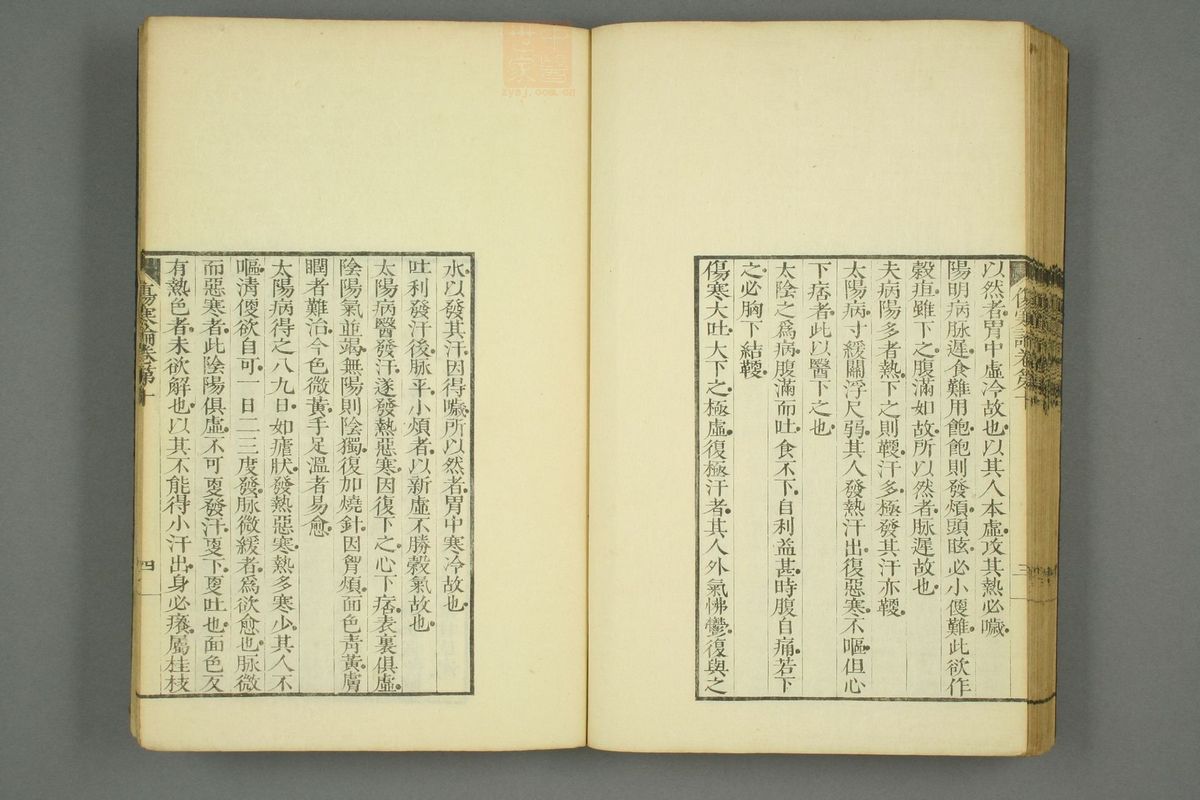 以然者胃中虛冷故也以其人本虛攻其熱必噦
陽明病脉遲食難用飽飽則發煩頭眩必小便難此欲作
穀疸雖下之腹滿如故所以然者脉遲故也
夫病陽多者熱下之則鞕汗多極發其汗亦鞕
太陽病寸緩關浮尺弱其人發熱汗出復惡寒不嘔但心
下痞者此以醫下之也
太陰之爲病腹滿而吐食不下自利益甚時腹自痛若下
之必胸下結鞕
傷寒大吐大下之極虛復極汗者其人外氣怫鬱復與之
傷寒論卷第十
三
水以發其汗因得噦所以然者胃中寒冷故也
吐利發汗後脉平小煩者以新虛不勝穀氣故也
太陽病醫發汗遂發熱惡寒因復下之心下痞表裏俱虛
陰陽氣並竭無陽則陰獨復加燒針因胷煩面色青黃膚
瞤者難治今色微黃手足溫者易愈
太陽病得之八九日如瘧狀發熱惡寒熱多寒少其人不
嘔清便欲自可一日二三度發脉微緩者爲欲愈也脉微
而惡寒者此陰陽俱虛不可更發汗更下更吐也面色反
有熱色者未欲解也以其不能得小汗出身必癢屬桂枝
傷寒論卷第十
四
中醫世家
zysj.com.cn